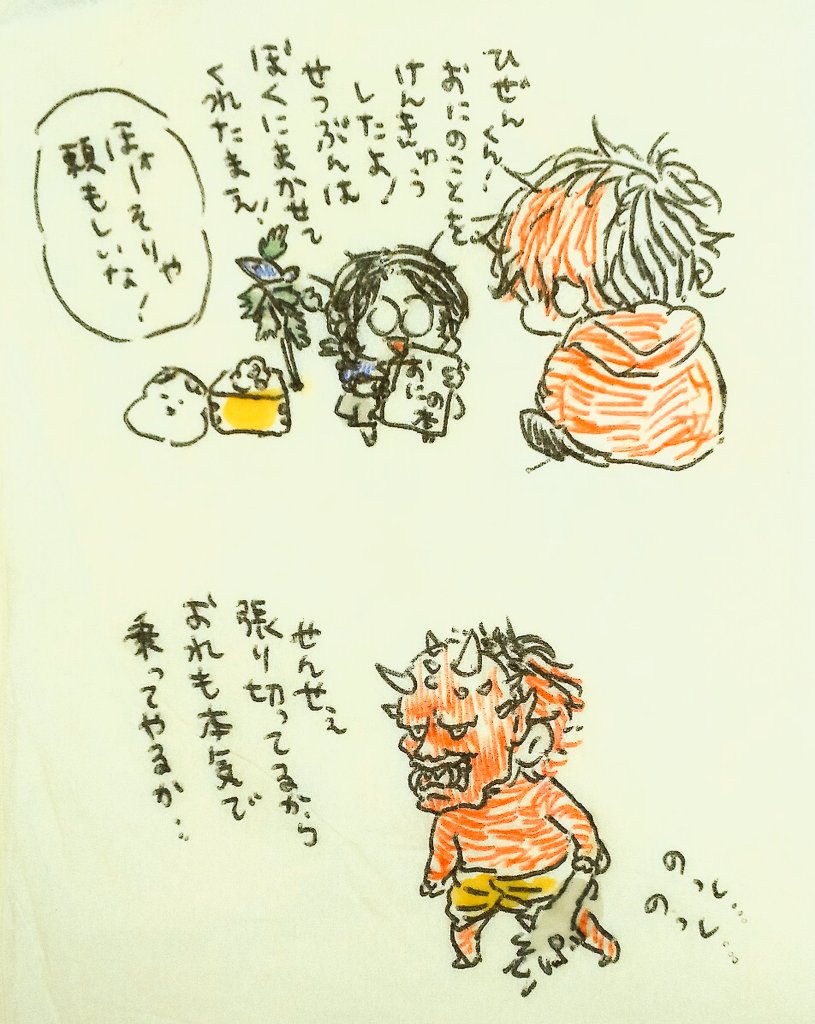 ひぜんくん!
おにのことを
けんきゅう
したよ!
せつぶんは
ぼくにまかせて
くれたまえ!
おに
の本
ほォーそりゃ
頼もしいな!
せんせぇ
張り切ってるから
おれも本気で
乗ってやるか…
のっし…
のっし…